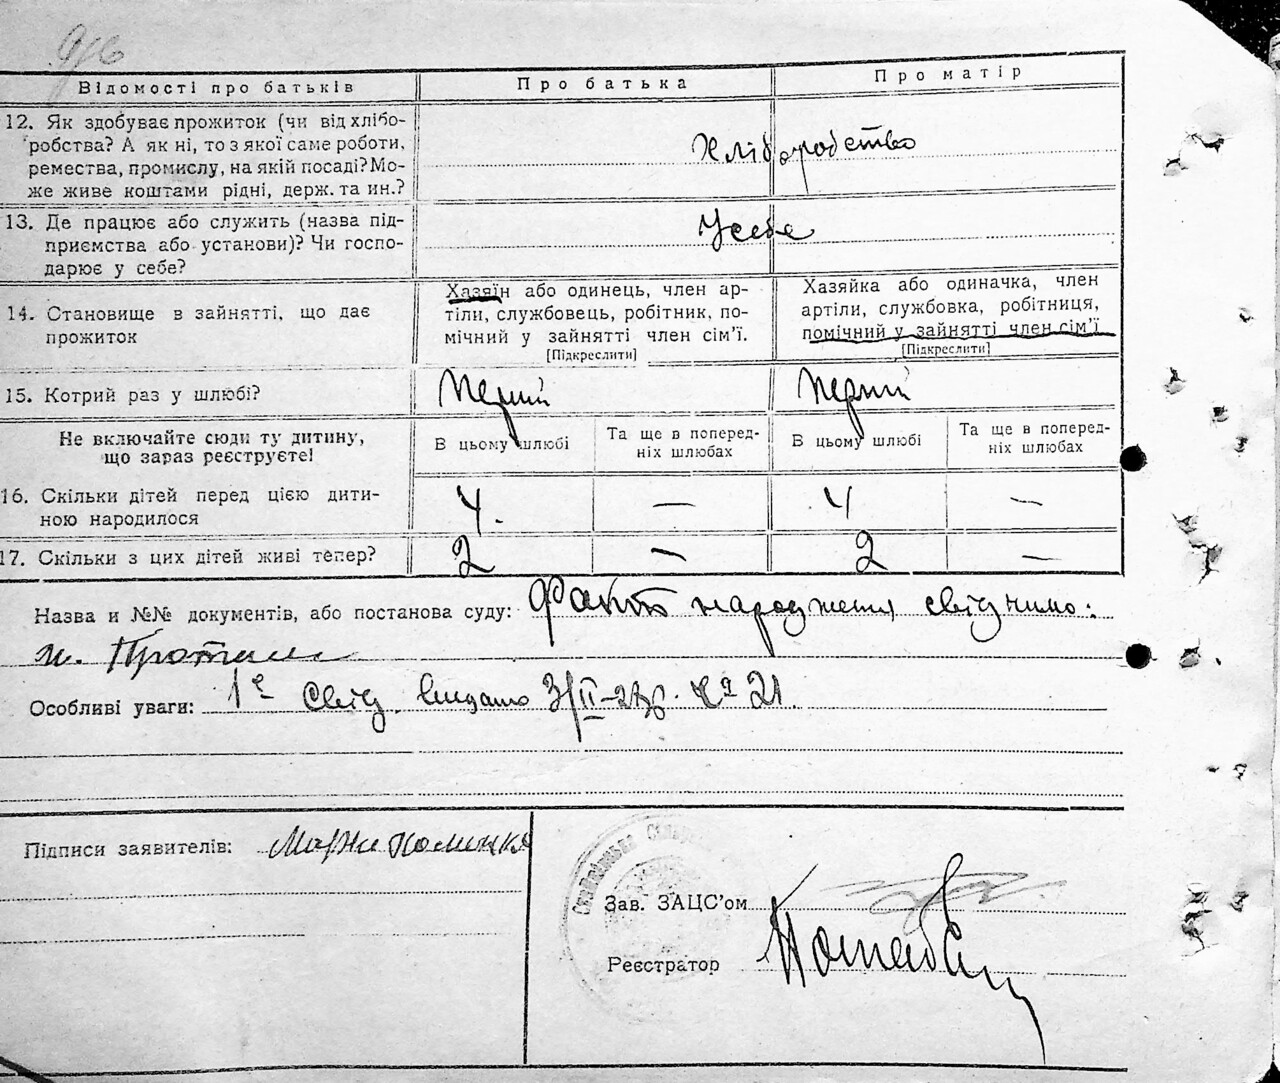 Відомості про батьків
Про батька
Про матір
12. Як здобуває прожиток (чи від хлібо-
робства? А як ні, то з якої саме роботи,
ремества, промислу, на якій посаді? Мо-
же живе коштами рідні, держ. та ин.?
Хліборобство
13. Де працює або служить (назва під-
приємства або установи)? Чи госпо-
дарює у себе?
У себе
14. Становище в зайнятті, що дає
прожиток
Хазяїн або одинець, член ар-
тіли, службовець, робітник, по-
мічний у зайнятті член сім'ї.
[Підкреслити]
Хазяйка або одиначка, член
артіли, службовка, робітниця,
помічний у зайнятті член сім'ї
[Підкреслити]
15. Котрий раз у шлюбі?
Перший
Перший
Не включайте сюди ту дитину,
що зараз реєструєте!
В цьому шлюбі
Та ще в поперед-
ніх шлюбах
В цьому шлюбі
Та ще в поперед-
ніх шлюбах
16. Скільки дітей перед цією дити-
ною народилося
4. — 4 —
17. Скільки з цих дітей живі тепер?
2 — 2 —
Назва и №№ документів, або постанова суду: Факт народження свідчимо:
Особливі уваги: 1е свід. видано 3/II № 21.
Підписи заявителів:
Зав. ЗАЦС'ом
Реєстратор